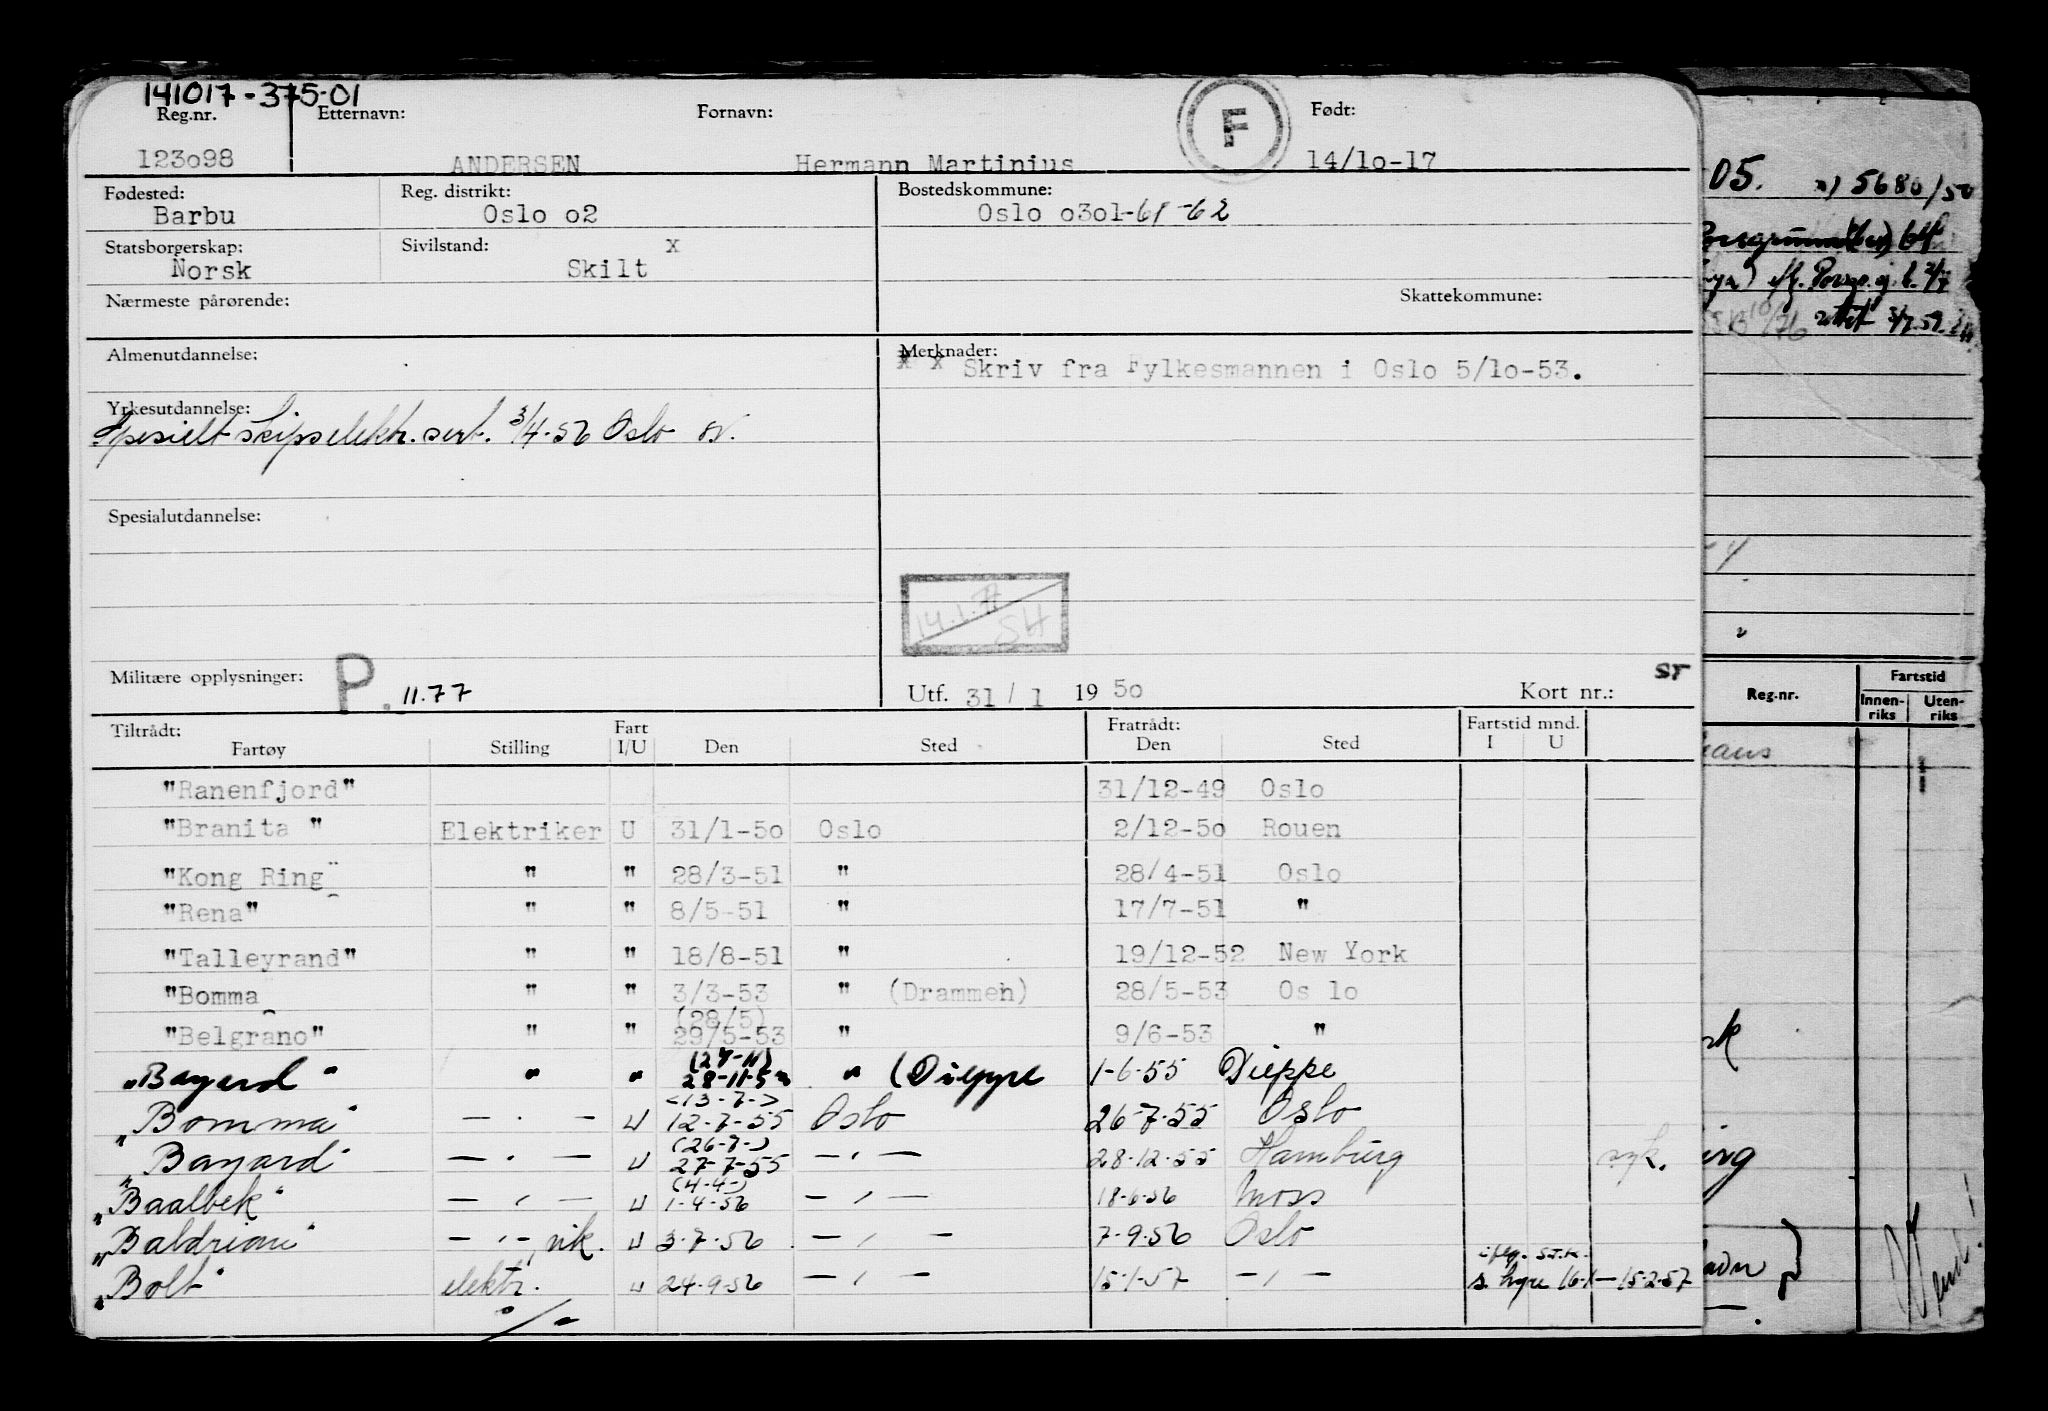 141017-375-01
Reg.nr. Etternavn: Fornavn: F Født:
123o98 ANDERSEN Hermann Martinius 14/1o-17
Fødested: Reg. distrikt: Bostedskommune:
Barbu Oslo o2 Oslo o3o1-61-62
Statsborgerskap: Sivilstand: x
Norsk Skilt
Nærmeste pårørende: Skattekommune:
Almenutdannelse: Merknader:
x x Skriv fra Fylkesmannen i Oslo 5/1o-53.
Yrkesutdannelse:
Spesielt skipselektr. sert. 3/4-56 Oslo
Spesialutdannelse:
14.1.
SH
Militære opplysninger: P. 11.77 Utf. 31/1 1950 Kort nr.: ST
Tiltrådt: Fart Fratrådt: Fartstid mnd.
Fartøy Stilling I/U Den Sted Den Sted I U
"Ranenfjord" 31/12-49 Oslo
"Branita " Elektriker U 31/1-5o Oslo 2/12-5o Rouen
"Kong Ring" " " 28/3-51 " 28/4-51 Oslo
"Rena" " " 8/5-51 " 17/7-51 "
"Talleyrand" " " 18/8-51 " 19/12-52 New York
"Bomma " " 3/3-53 " (Drammen) 28/5-53 Os lo
(28/5)
"Belgrano" " " 29/5-53 " 9/6-53 "
(27-11)
"Bayard" " " 28-11-5 " (Dieppe 1-6-55 Dieppe
(13-7-)
"Bomma" — . — U 12-7-55 Oslo 26-7-55 Oslo
(26-7-)
"Bayard" — . — U 27-7-55 — , — 28.12.55 Hamburg syk.
(4-4-)
"Baalbek" — , — U 1-4-56 — , — 18-6-56 Moss
"Baldrian" — , — , vik. U 3-7-56 — , — 7-9-56 Oslo
iflg. S.T.K.
"Bolt" elektr. U 24-9-56 — , — 15-1-57 — , — s. hyre 16-1 — 15-2-57
"/"
05. x) 5680/50
Fartstid
Reg.nr. Innenriks Utenriks